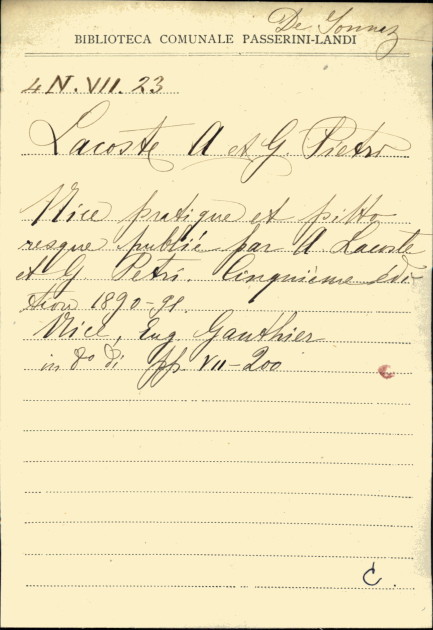 BIBLIOTECA COMUNALE PASSERINI-LANDI
4 N. VII. 23
Lacoste A et G. Pietri
Nice pratique et pitto
resque publié par A Lacoste
et G. Petri. Cinquième édi
tion 1890-91.
Nice, Eug Gauthier
in 8° di pp. VII-200
C.